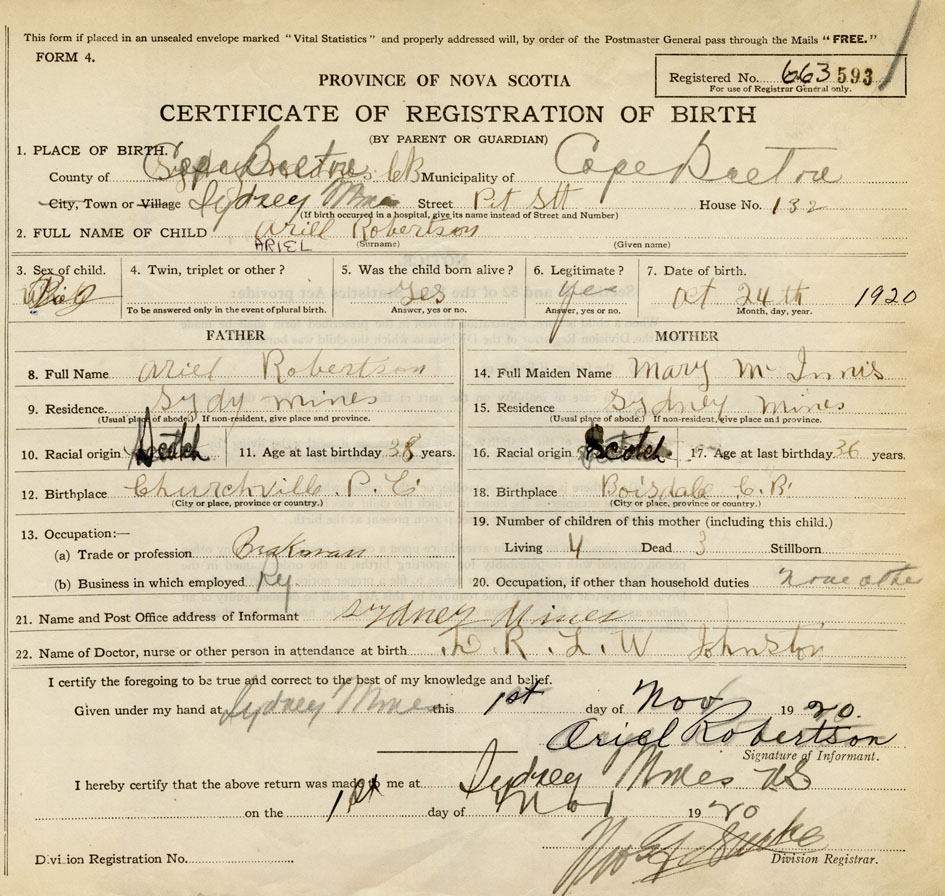 This form if placed in an unsealed envelope marked "Vital Statistics" and properly addressed will, by order of the Postmaster General pass through the Mails "FREE."
FORM 4.
PROVINCE OF NOVA SCOTIA
Registered No. 663 593
For use of Registrar General only.
CERTIFICATE OF REGISTRATION OF BIRTH
(BY PARENT OR GUARDIAN)
1. PLACE OF BIRTH.
County of Cape Breton CB Municipality of Cape Breton
City, Town or Village Sydney Mines Street Pit Stt House No. 132
(If birth occurred in a hospital, give its name instead of Street and Number)
2. FULL NAME OF CHILD Ariel Robertson
ARIEL (Surname) (Given name)
3. Sex of child. 4. Twin, triplet or other? 5. Was the child born alive? 6. Legitimate? 7. Date of birth.
Boy Yes yes Oct 24th 1920
To be answered only in the event of plural birth. Answer, yes or no. Answer, yes or no. Month, day, year.
FATHER MOTHER
8. Full Name Ariel Robertson 14. Full Maiden Name Mary Mc Innis
9. Residence. Sydy mines 15. Residence Sydney mines
(Usual place of abode.) If non-resident, give place and province. (Usual place of abode.) If non-resident, give place and province.
10. Racial origin Scotch 11. Age at last birthday 38 years. 16. Racial origin Scotch 17. Age at last birthday 36 years.
12. Birthplace Churchville P. E 18. Birthplace Boisdale C. B.
(City or place, province or country.) (City or place, province or country.)
13. Occupation:— 19. Number of children of this mother (including this child.)
(a) Trade or profession Brakman Living 4 Dead 3 Stillborn
(b) Business in which employed Ry. 20. Occupation, if other than household duties None other
21. Name and Post Office address of Informant Sydney Mines
22. Name of Doctor, nurse or other person in attendance at birth D. R. L. W Johnston
I certify the foregoing to be true and correct to the best of my knowledge and belief.
Given under my hand at Sydney Mines this 1st day of Nov 1920.
Ariel Robertson
Signature of Informant.
I hereby certify that the above return was made to me at Sydney Mines NS
on the 1st day of Nov 1920
Division Registrar.
Division Registration No.